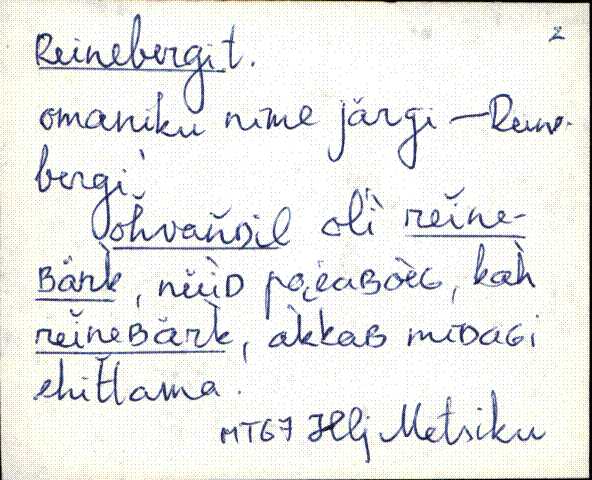 2
Reinebergi t.
omaniku nime järgi — Reine-
bergi
ohvandil oli reine-
BÄrk, nüid poeaBòeG, kah
reineBärk, àkkaB miDaGi
ehitlama.
MT67 Hlj Metsiku